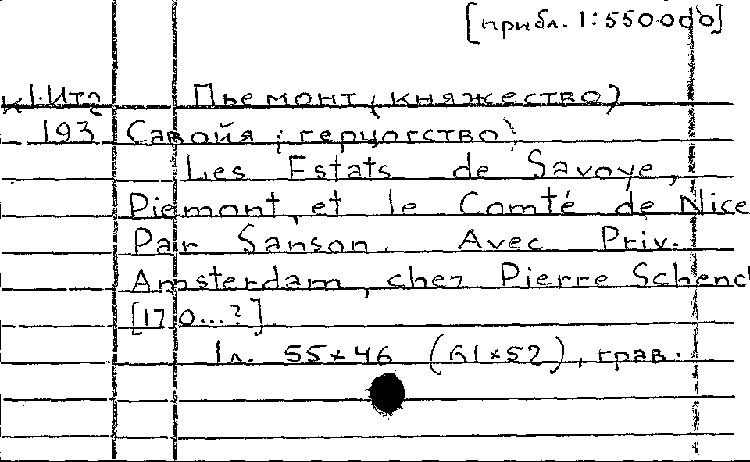 [прибл. 1:550000]
к1-Ит2 Пьемонт (княжество)
193 Савойя (герцогство)
Les Estats de Savoye,
Piemont, et le Comté de Nice
Par Sanson. Avec Priv.
Amsterdam, chez Pierre Schenc
[170...?].
1 л. 55×46 (61×52), грав.